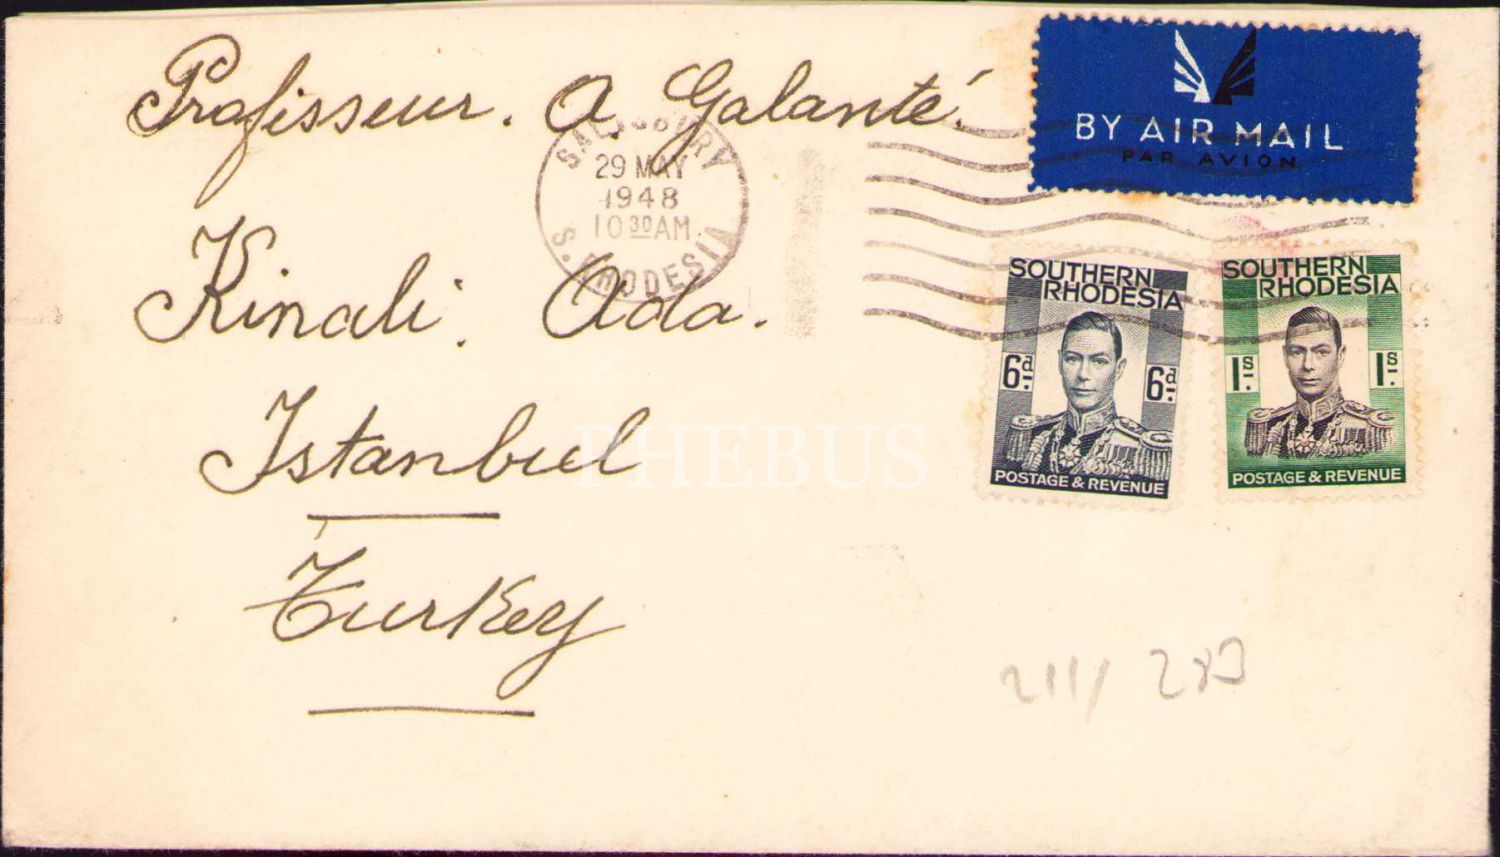 Profisseur. A. Galanté.
BY AIR MAIL
PAR AVION
SALISBURY
29 MAY
1948
10 30 AM.
S. RHODESIA
Kinali. Ada.
SOUTHERN
RHODESIA
6d.
6d.
POSTAGE & REVENUE
SOUTHERN
RHODESIA
1s.
1s.
POSTAGE & REVENUE
Istanbul
PHEBUS
Turkey